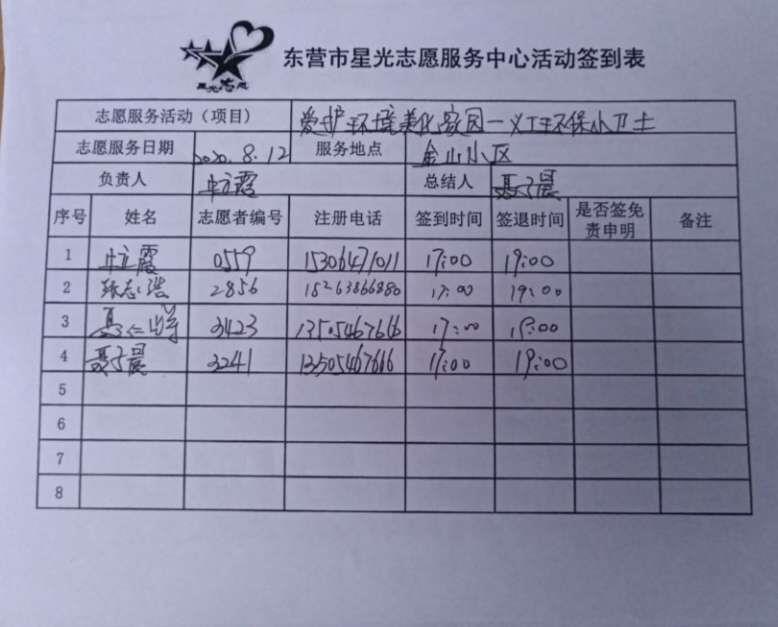 星光志愿
东营市星光志愿服务中心活动签到表
志愿服务活动（项目） 爱护环境美化家园一义工环保小卫士
志愿服务日期 2020.8.12 服务地点 金山小区
负责人 霞 总结人 聂子晨
序号 姓名 志愿者编号 注册电话 签到时间 签退时间 是否签免责申明 备注
1 霞 0559 15306471011 17:00 19:00
2 张志浩 2856 18263866880 17:00 19:00
3 聂仁 3423 13505467666 17:00 19:00
4 聂子晨 3241 13505467666 17:00 19:00
5
6
7
8